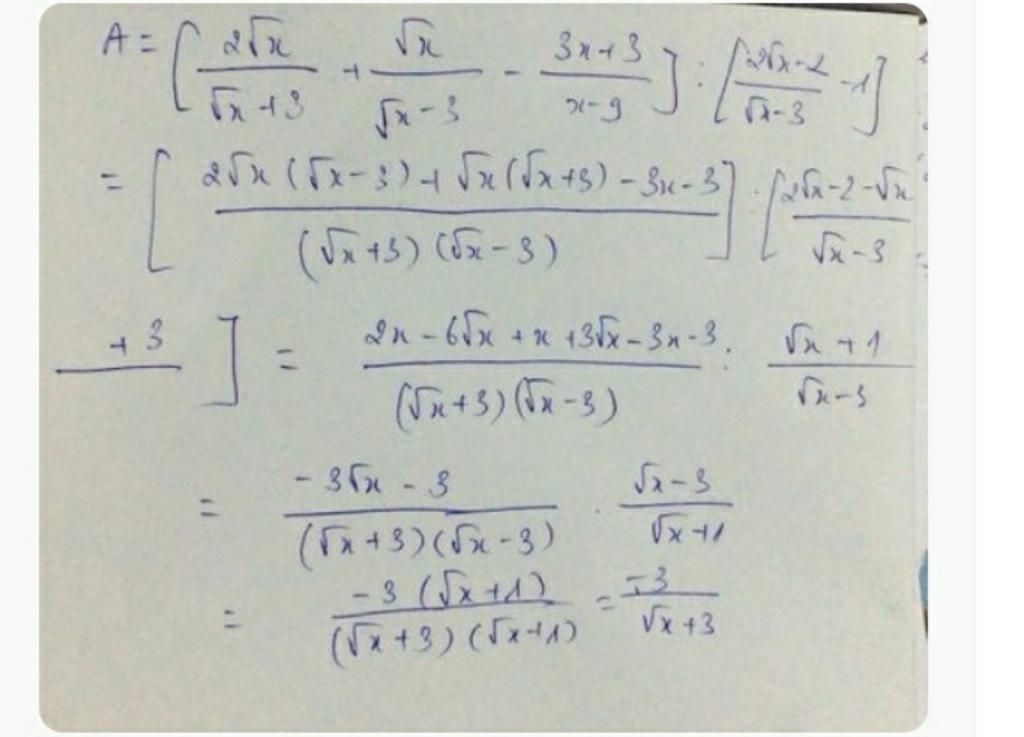 A = [ 2√x / (√x + 3) + √x / (√x - 3) - (3x + 3) / (x - 9) ] : [ (2√x - 2) / (√x - 3) - 1 ]
= [ (2√x (√x - 3) + √x (√x + 3) - 3x - 3) / ((√x + 3) (√x - 3)) ] : [ (2√x - 2 - √x) / (√x - 3)
+ 3 ] = (2x - 6√x + x + 3√x - 3x - 3) / ((√x + 3) (√x - 3)) : (√x + 1) / (√x - 3)
= (-3√x - 3) / ((√x + 3) (√x - 3)) . (√x - 3) / (√x + 1)
= -3 (√x + 1) / ((√x + 3) (√x + 1)) = -3 / (√x + 3)